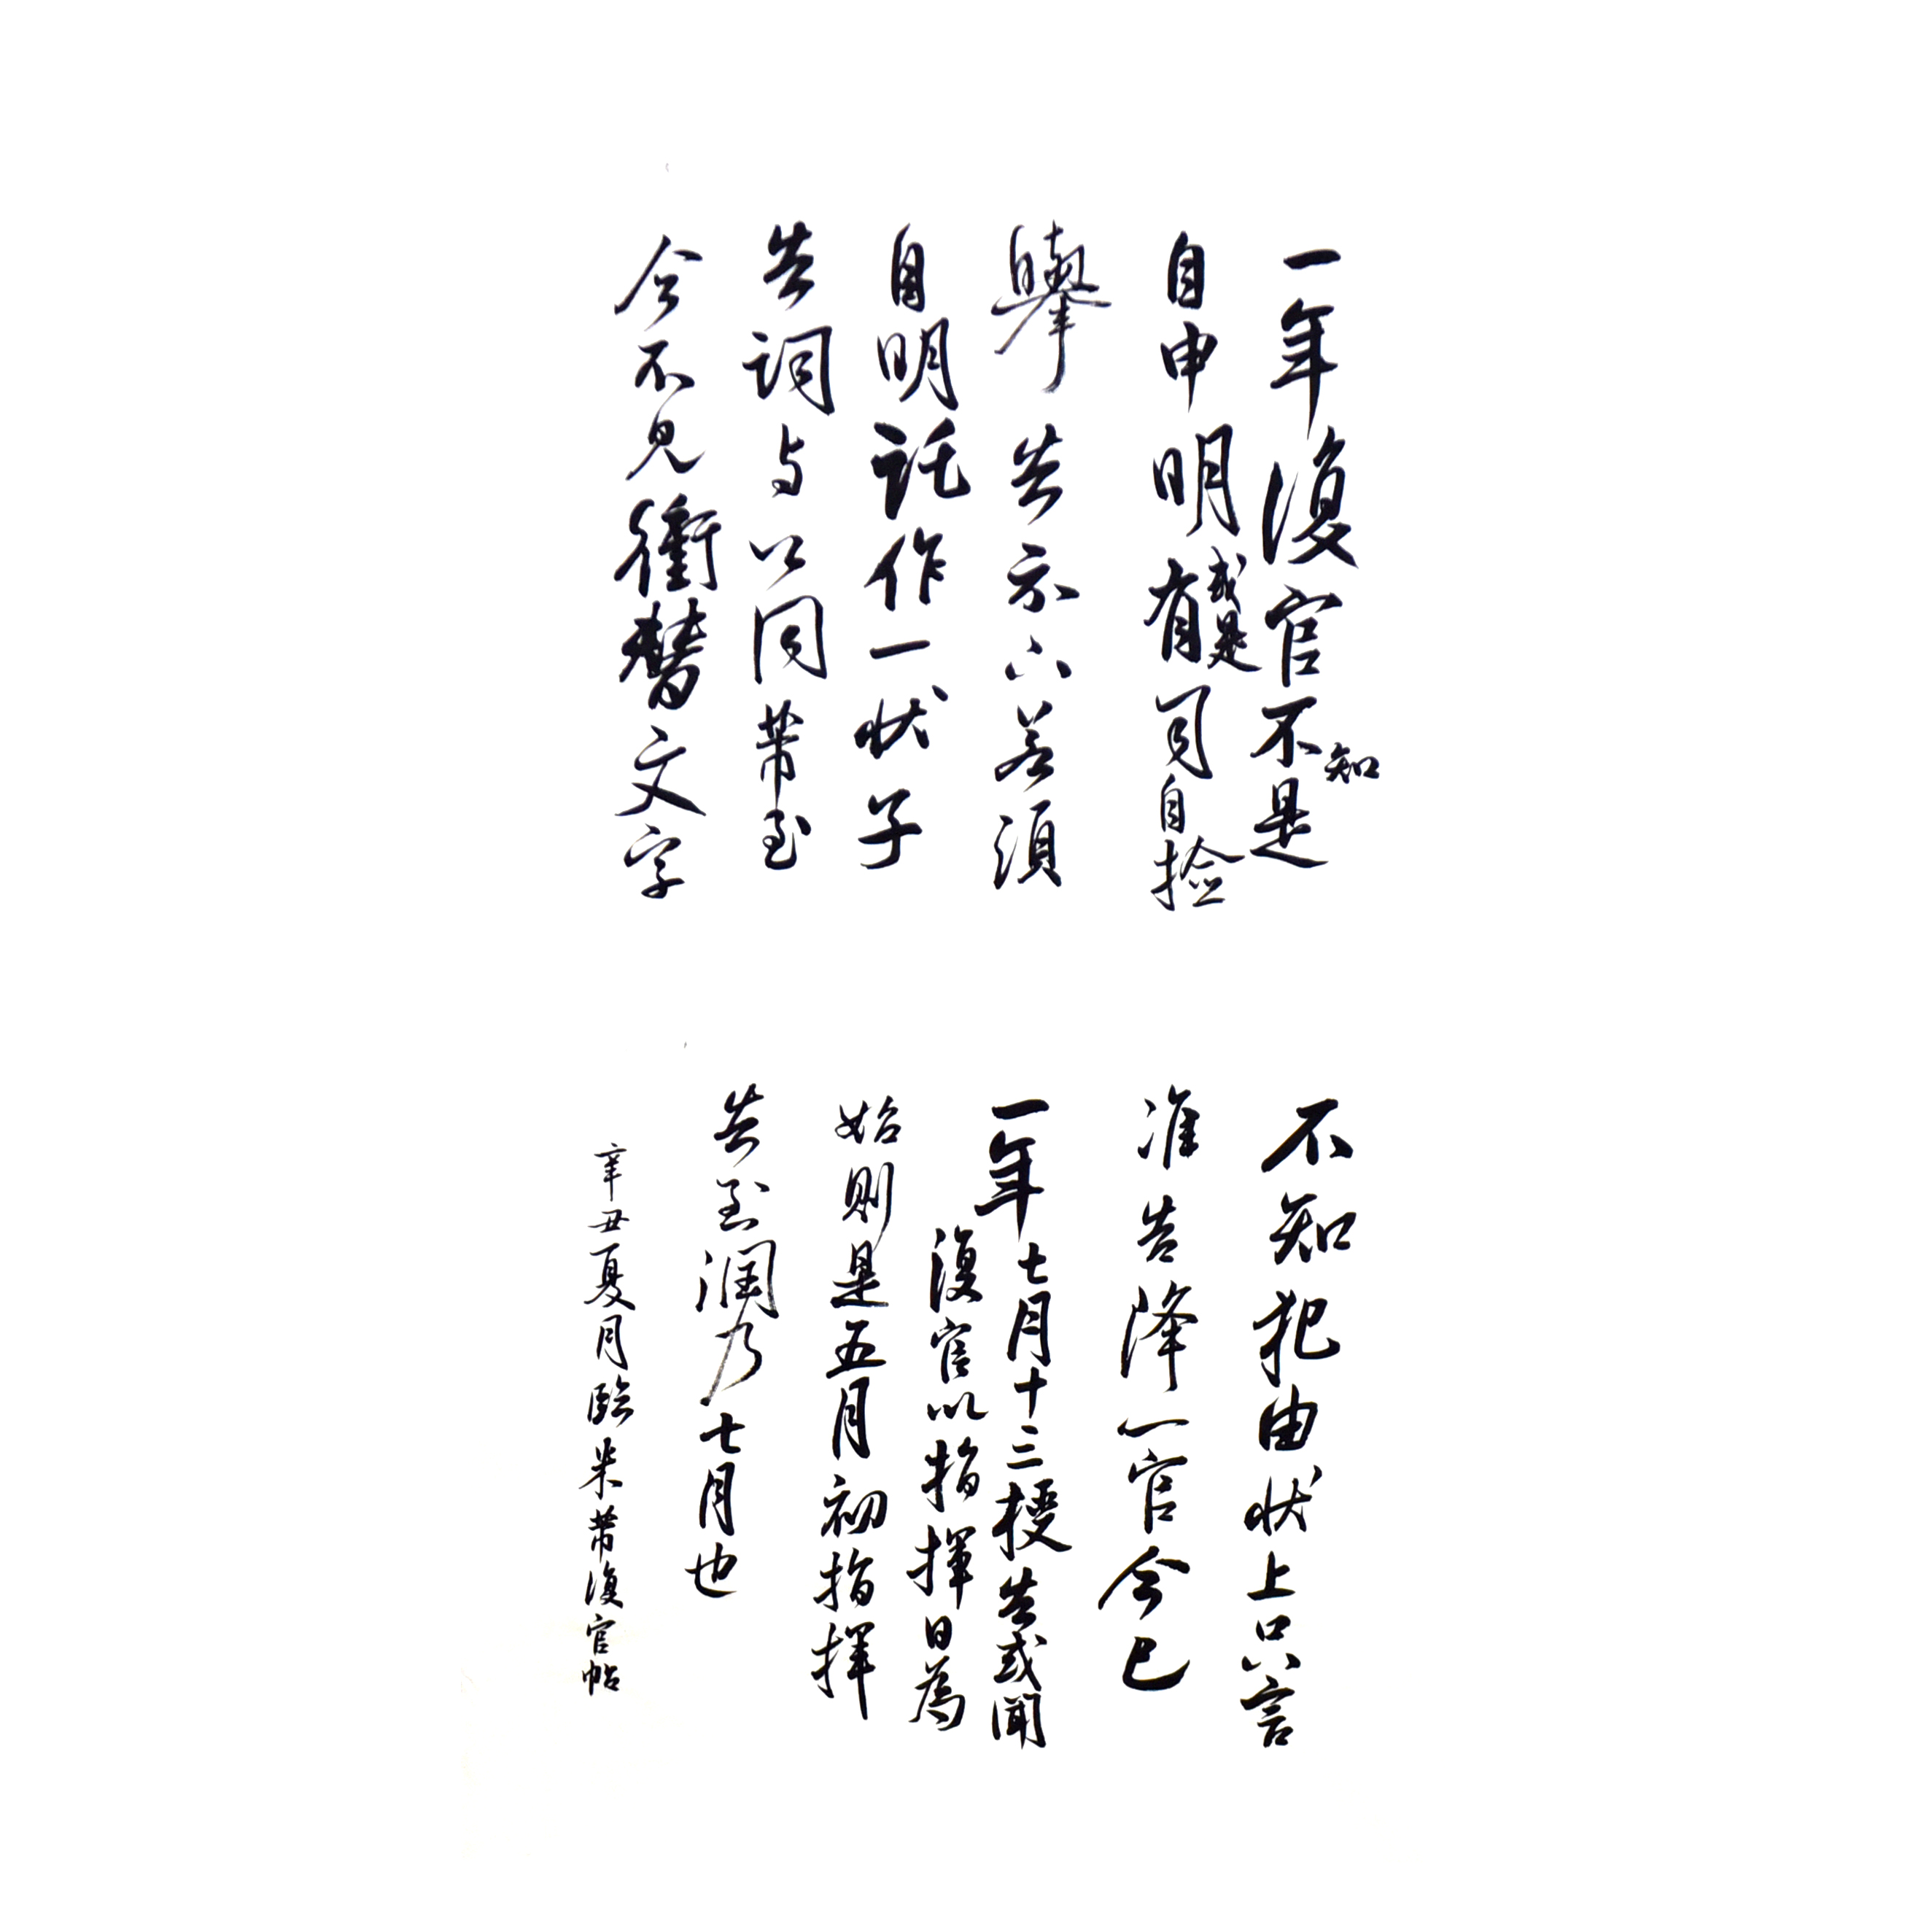 一年復官不知是
自申明或是有司自撿
舉告示六若須
自明託作一状子
告詞与公同帶至
今不見衝替文字
不知犯由状上只言
准告降一官今已
一年七月十三授告或聞
復官以指揮日為
始則是五月初指揮
告至潤乃七月也
辛丑夏月臨米芾復官帖